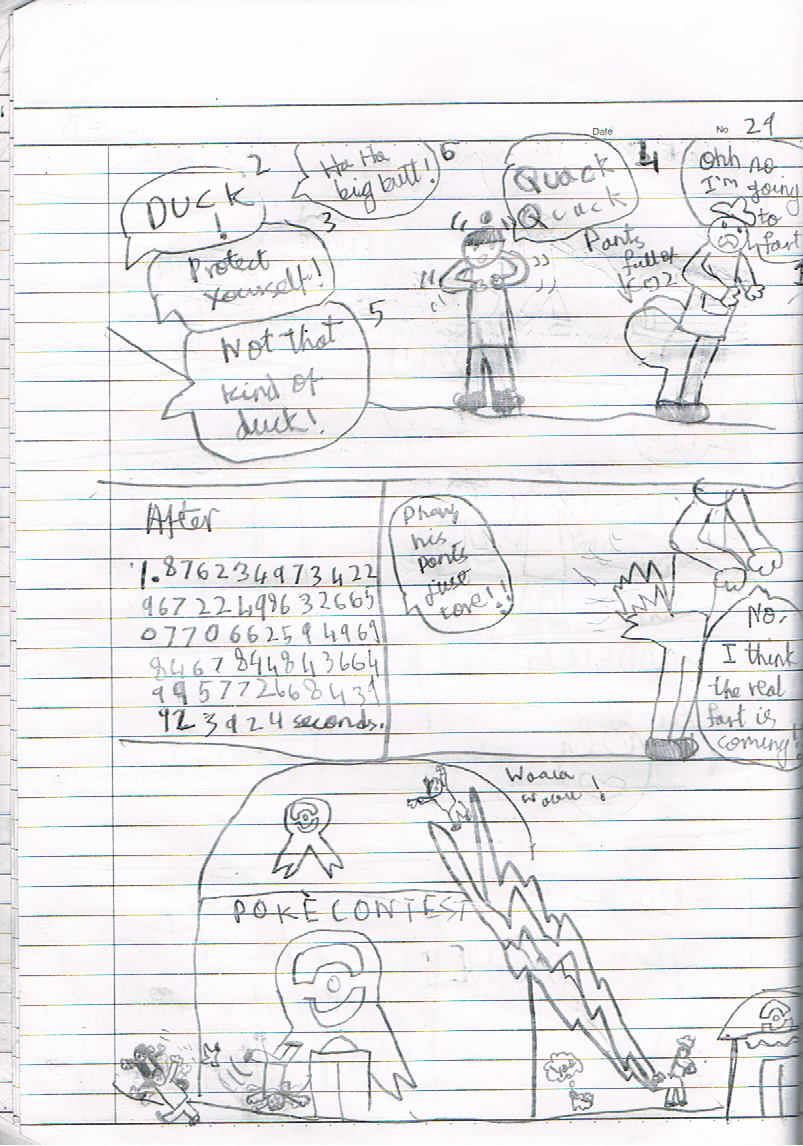 Date
No 29
2
DUCK
!
3
Protect
yourself!
5
Not that
kind of
duck!
Ha Ha
big butt!
6
Quack
Quack
4
Pants
full of
CO2
Ohh no
I'm going
to
fart
After
1.8762349734 22
9672249863 2665
0770662594969
8467844843664
995772668439
923924 seconds.
Phew,
his
pants
just
tore!!
No,
I think
the real
fart is
coming!!
Waaaa
waaa!
POKÈCONTEST